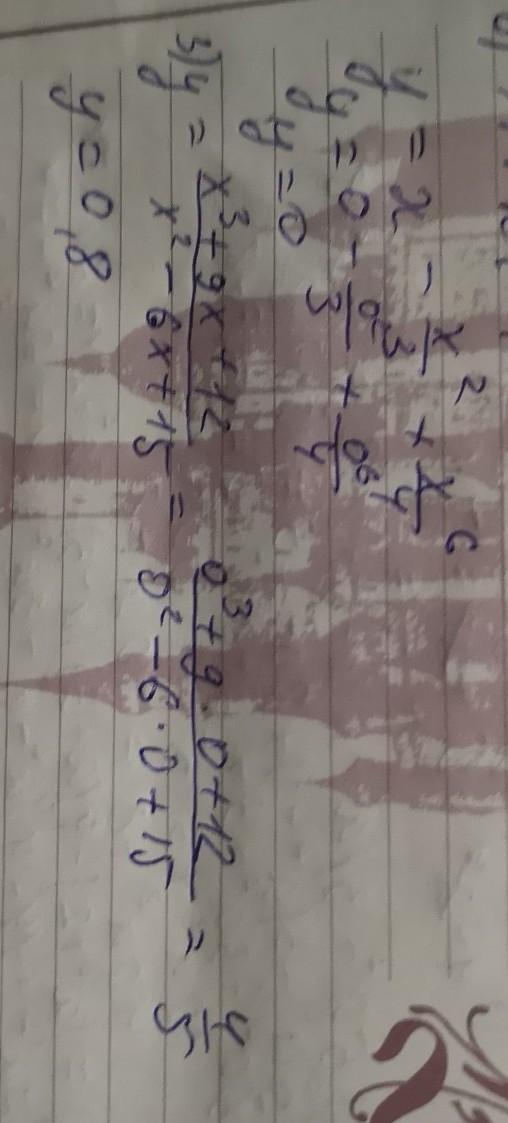 y = x - x²/3 + x⁶/4
y = 0 - 0²/3 + 0⁶/4
y = 0
3) y = (x³ + 9x + 12)/(x² - 6x + 15) = (0³ + 9·0 + 12)/(0² - 6·0 + 15) = 4/5
y = 0,8